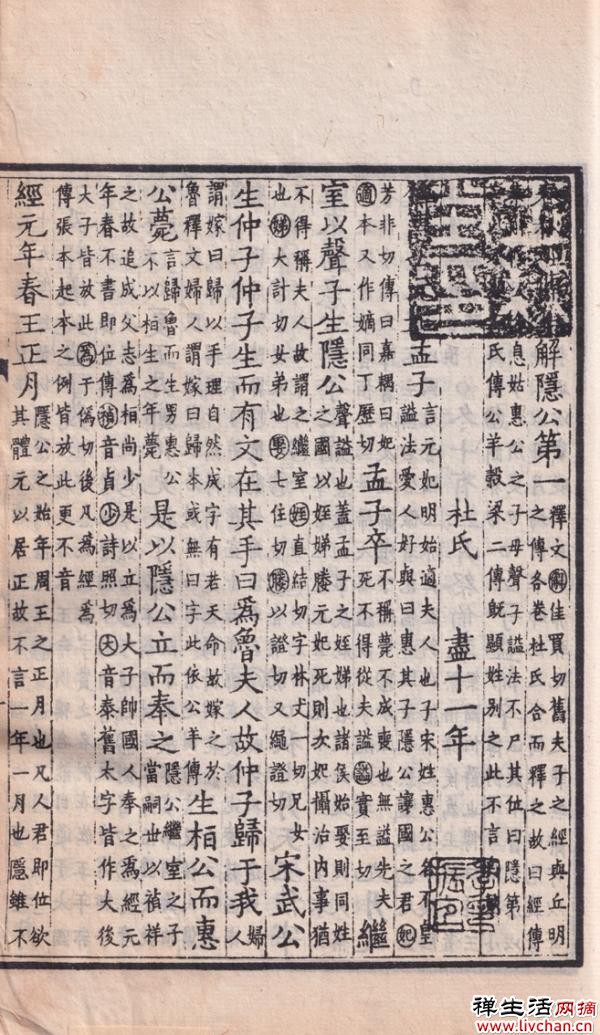 解隱公第一
釋文解佳買切舊夫子之經與丘明
之傳各卷杜氏合而釋之故曰經傳
息姑惠公之子母聲子謚法不尸其位曰隱第
氏傳公羊穀梁二傳既顯姓别之此不言
杜氏 盡十一年
孟子
言元妃明始適夫人也子宋姓惠公名不皇
謚法愛人好與曰惠其子隱公讓國之君妃
芳非切傳曰嘉耦曰妃
適本又作嫡同丁歷切
孟子卒
不稱薨不成喪也無謚先夫
死不得從夫謚謚實至切
繼
室以聲子生隱公
聲謚也蓋孟子之姪娣也諸侯始娶則同姓
之國以姪娣媵元妃死則次妃攝治内事猶
不得稱夫人故謂之繼室姪直結切字林丈一切兄女
也娣大計切女弟也娶七住切媵以證切又繩證切
宋武公
生仲子仲子生而有文在其手曰爲魯夫人故仲子歸于我
婦
人
謂嫁曰歸以手理自然成字有若天命故嫁之於
魯釋文婦人謂嫁曰歸本或無曰字此依公羊傳
生桓公而惠
公薨
言歸魯而生男惠公
不以桓生之年薨
是以隱公立而奉之
隱公繼室之子
當嗣世以禎祥
之故追成父志爲桓尚少是以立爲大子帥國人奉之爲經元
年春不書即位傳禎音貞少詩照切大音泰舊太字皆作大後
大子皆放此爲于僞切後凡爲經爲
傳張本起本之例皆放此更不音
經元年春王正月
隱公之始年周王之正月也凡人君即位欲
其體元以居正故不言一年一月也隱雖不
禅生活网摘
www.livchan.cn